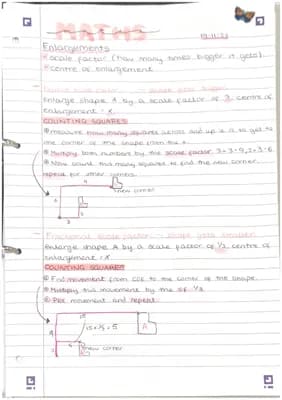 MATHS
19.11.21
Enlargements
scale factor (how many times bigger it gets)
centre of enlargement
scale factor - shape gets bigger
Enlarge shape A by a scale factor of 3, centre of
enlargement : x.
COUNTING SQUARES
measure how many squares across and up is to get to
the corner of the shape from the
Multiply both numbers by the scale factor. 3×3=9, 2×3=6
Now count this many squares to find the new corner.
repeat for other corners.
9
new corner
6
2
3
Fractional scale factor - shape gets smaller
Enlarge shape A by a scale factor of 1/3, centre of
enlargement : x
COUNTING SQUARES
Find movement from COE to the corner of the shape.
Multiply this movement by the SF 1/3
Plot movement and repeat.
15
15×1/3=5
A
9
new corner
3